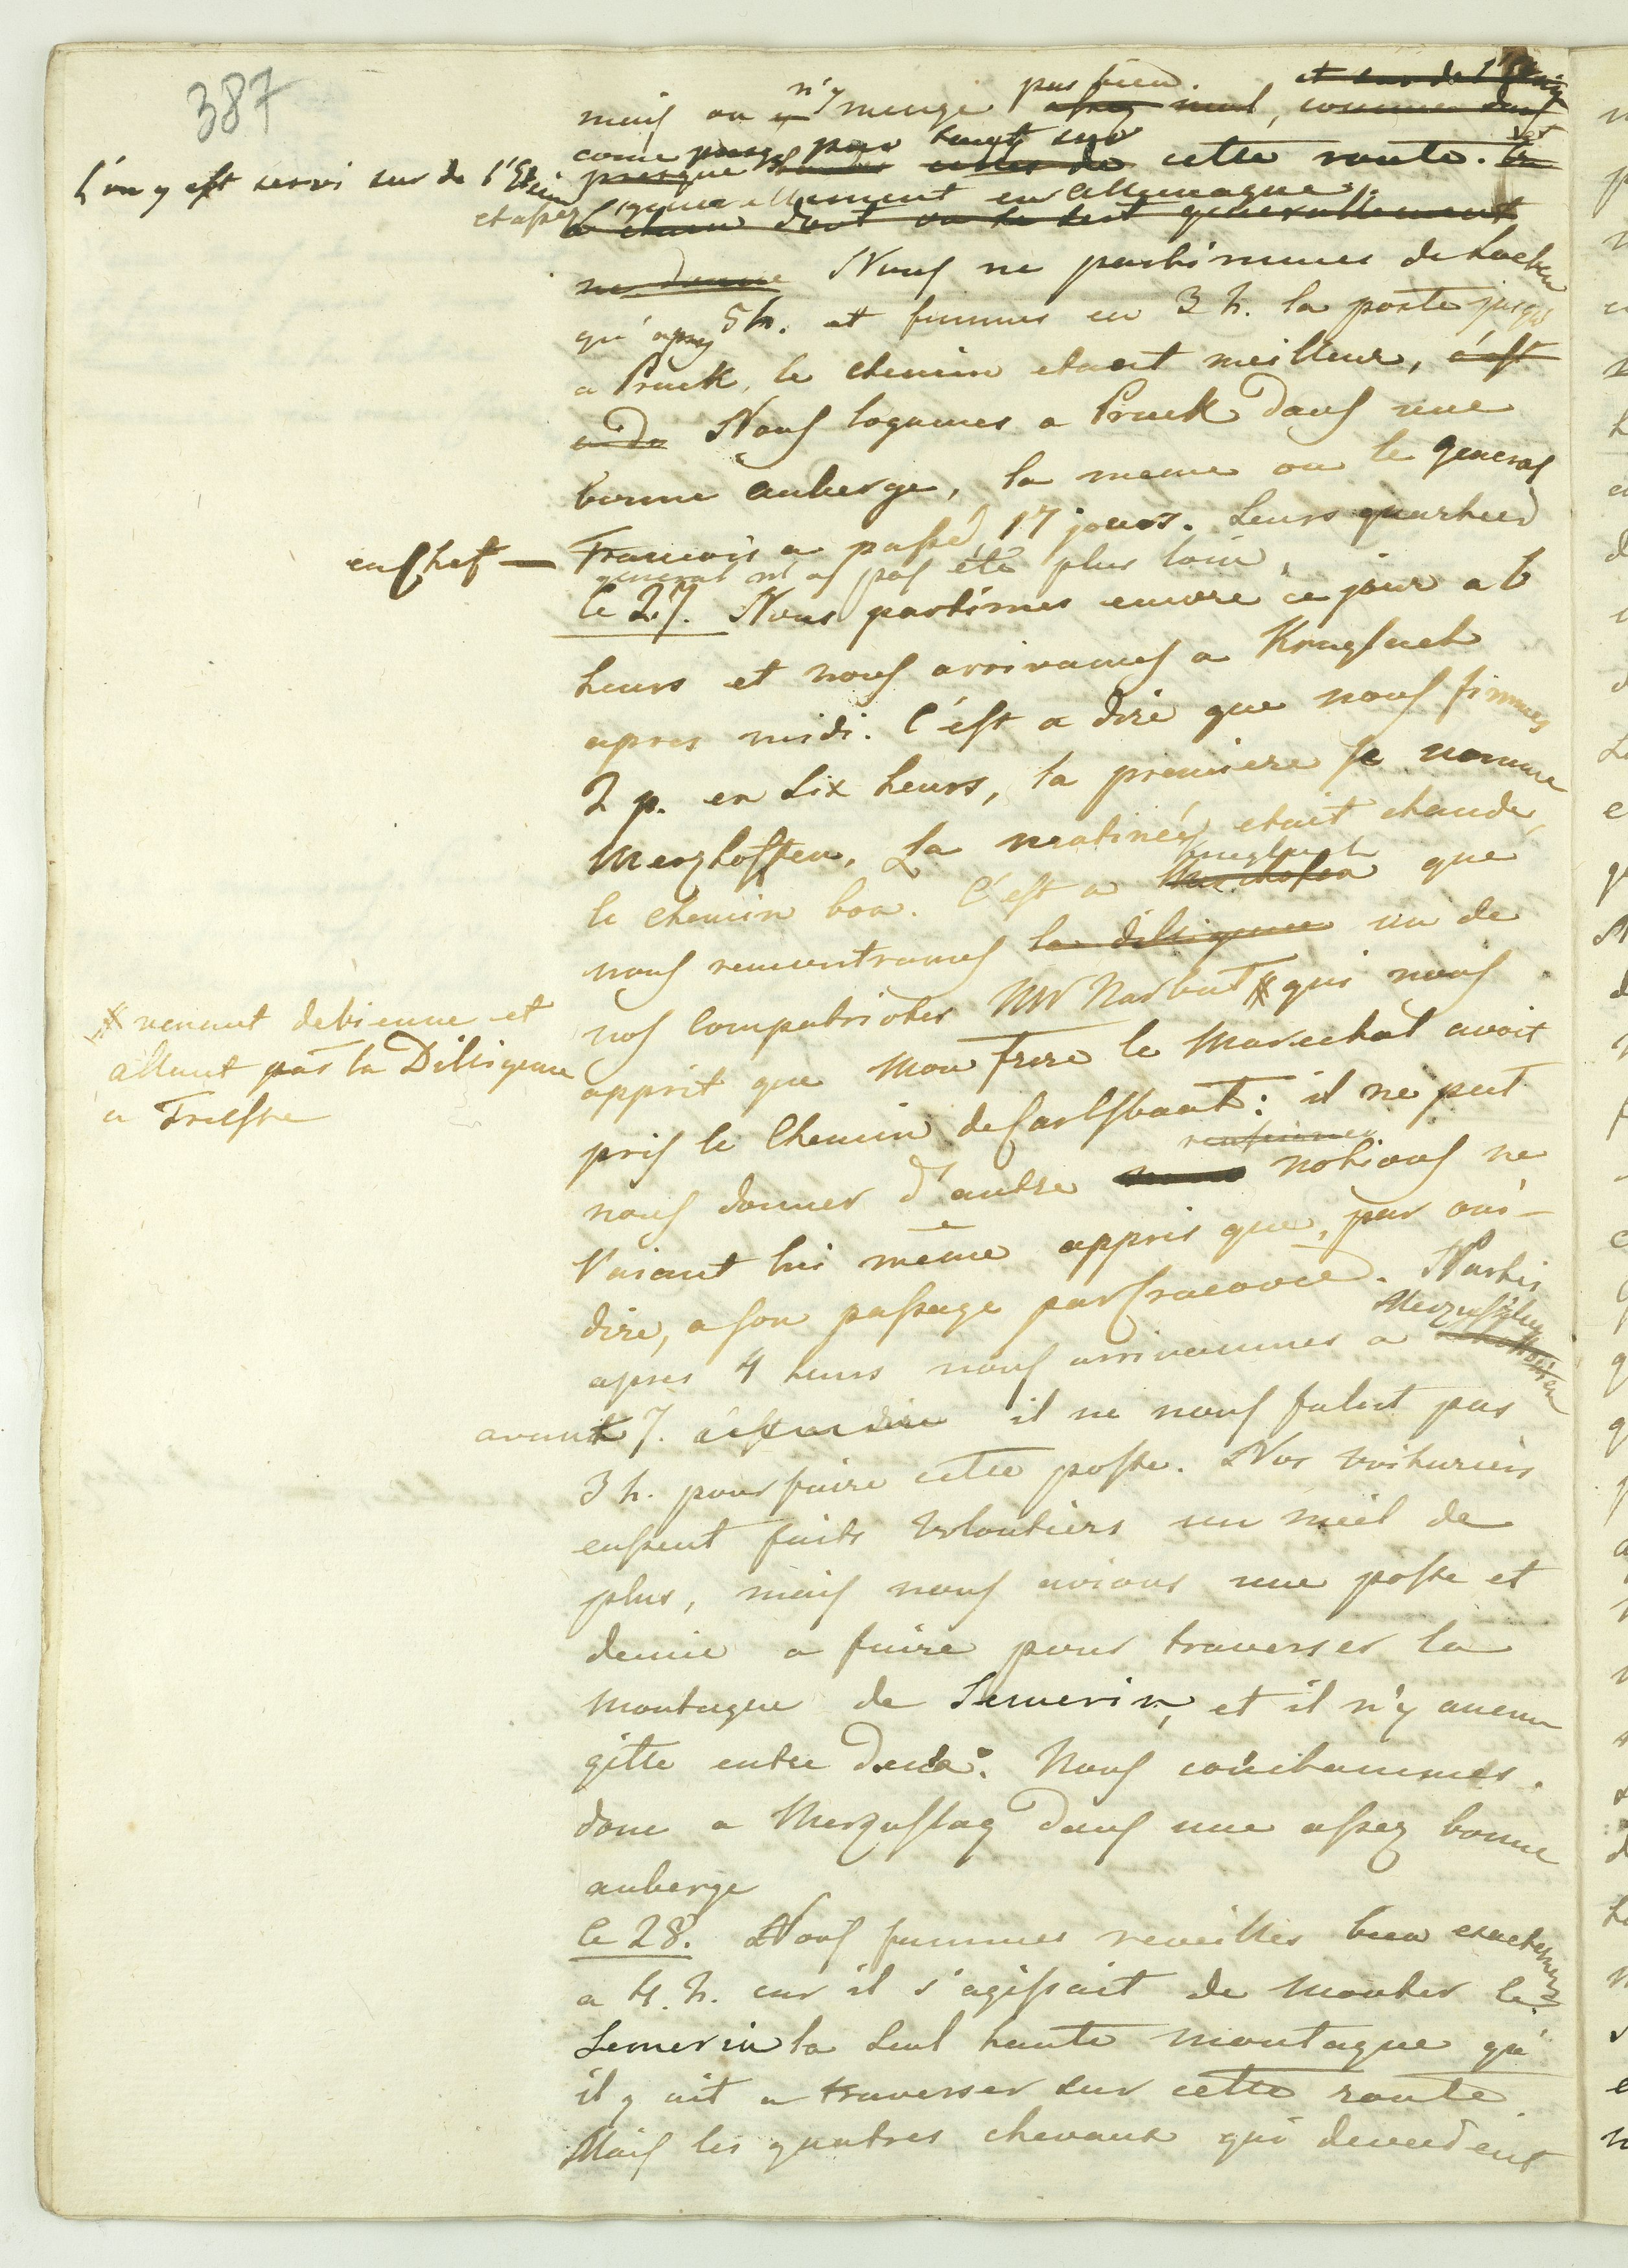 387
mais on n'y mange pas bien. et sur de l'Etain
assez mal, comme
come presque par tout sur cette route.
L'on y est servi sur de l'Etain
et assez generallement en Allemagne.
a dont on se sert generallement
ne donne Nous ne partimmes de
qu'apres 5 h. et fimmes en 3 h. la poste jusqu'
a Pruck, le chemin etaoit meilleur, c'est
a de Nous logames a Pruck dans une
bonne auberge, la meme ou le general
en Chef — Francois a passé 17 jours. Leurs quartier
general n'as pas été plus loin.
le 27. Nous partimes encore ce jour a 6
heurs et nous arrivames a Kruglach
apres midi. C'est a dire que nous fimmes
2 p. en six heurs, la premiere se nomme
Merzhoffen. La matinée etait chaude,
le chemin bon. C'est a Kruglach que
nous rencontrames la diligence un de
nos compatriotes Mr Narbut # qui nous
# venant de Vienne et
allant par la Diligence
a Trieste
apprit que Mon frere le Marechal avoit
pris le Chemin de Carlsbaat: il ne put
nous donner d'autre notions ne
l'aiant lui même appris que, par oui-
dire, a son passage par Cracovie. Partis
apres 4 heurs nous arrivammes a Merzuschlag
avant 7. c'est a dire il ne nous falut pas
3 h. pour faire cette poste. Nos voituriers
eussent faits volontiers un miel de
plus, mais nous avions une poste et
demie a faire pour traverser la
montagne de Semerin, et il n'y aucun
gitte entre deux. Nous couchammes
donc a Merzuslag dans une assez bonne
auberge
le 28. Nous fummes reveilles bien exactement
a 4. h. car il s'agissait de monter le
Semerin la seul haute montagne qu'
il y ait a traverser sur cette route
Mais les quatres chevaux qui